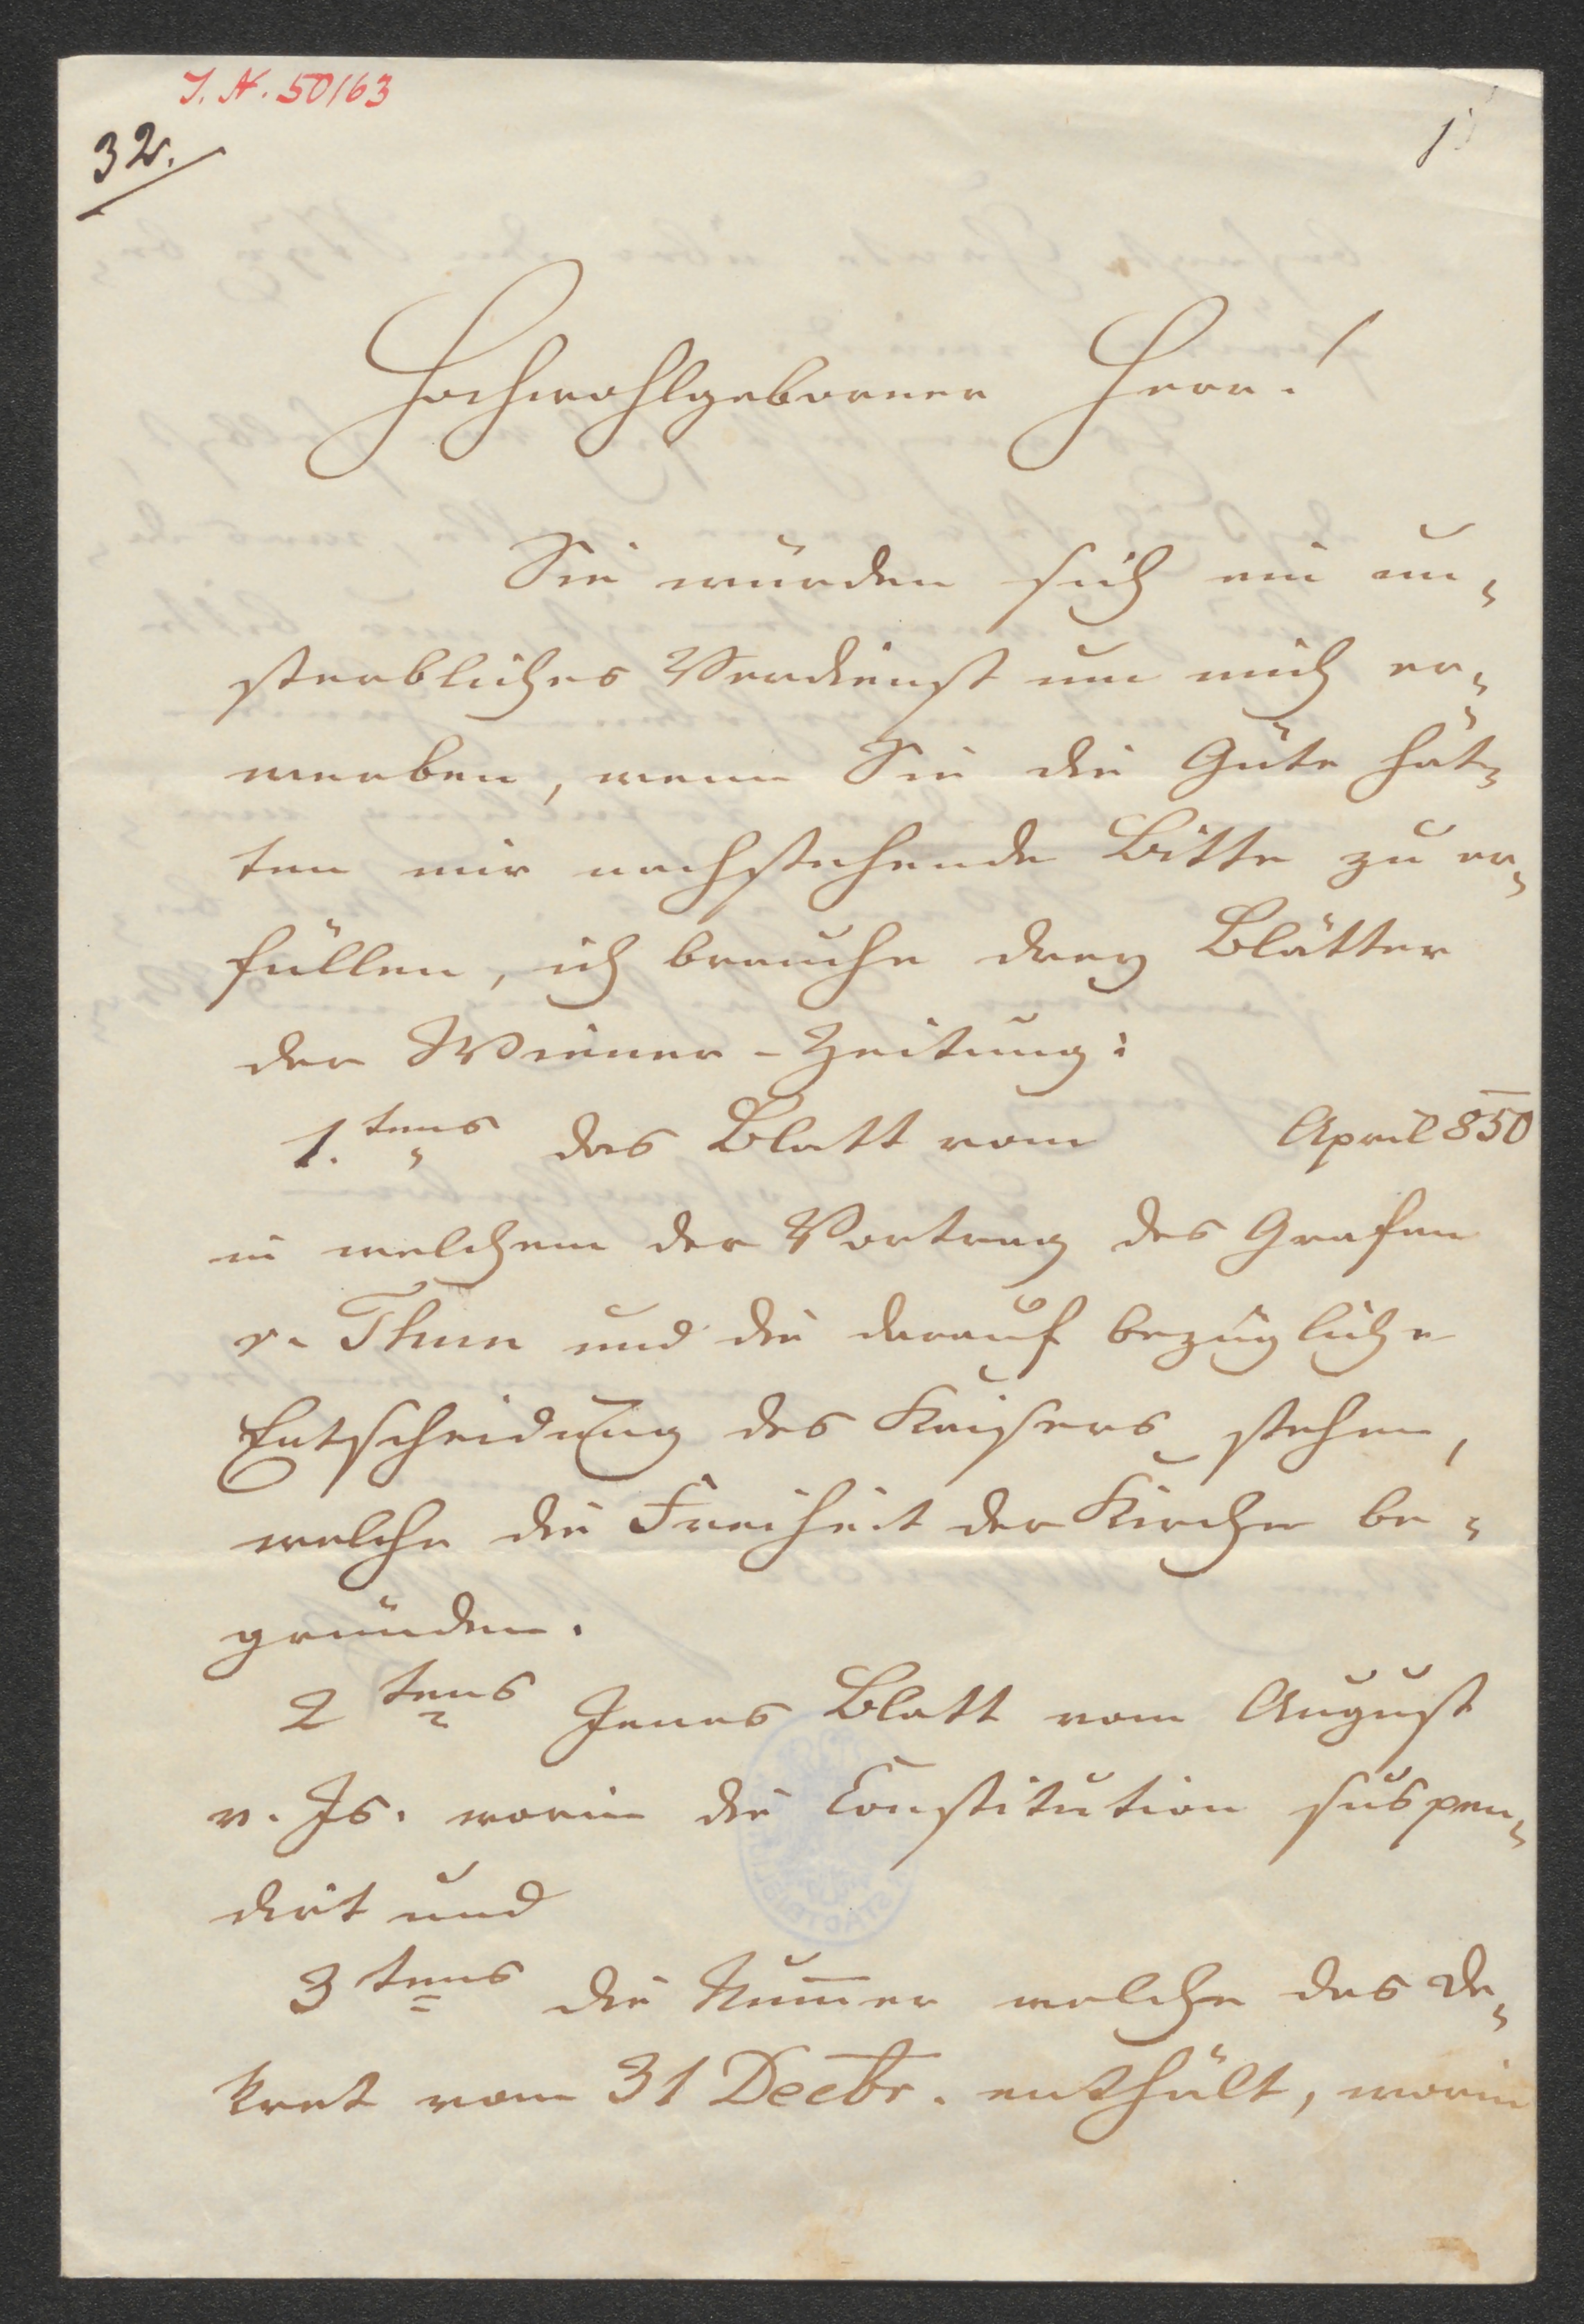 J. N. 50163
32.
1
Hochwohlgeborner Herr!
Sie würden sich ein un=
sterbliches Verdienst um mich er=
werben, wenn Sie die Güte hät=
ten mir nachstehende Bitte zu er=
füllen, ich brauche drey Blätter
der Wiener-Zeitung:
1.tens das Blatt vom April 850
in welchem der Vortrag des Grafen
v. Thun und die darauf bezügliche
Entscheidung des Kaisers stehen,
welche die Freiheit der Kirche be=
gründen.
2 tens Jenes Blatt vom August
v. Js. worin die Constitution suspen=
dirt und
3 tens die Num̅er welche das De=
kret vom 31 Decbr. enthält, worin